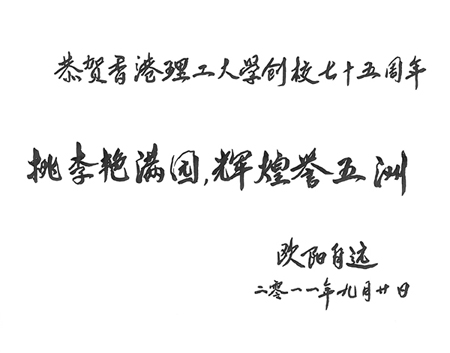 恭贺香港理工大学创校七十五周年
桃李艳满园,辉煌誉五洲
欧阳自远
二零一一年九月廿日